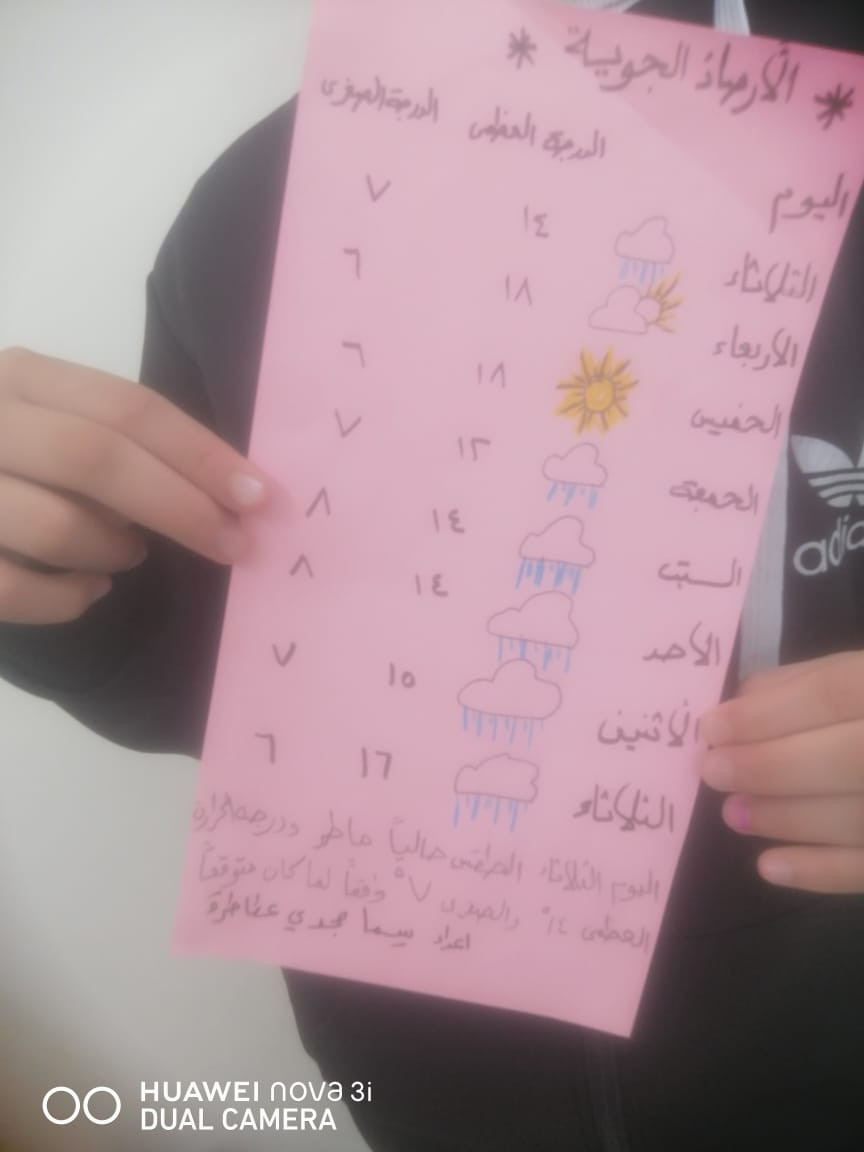 * الأرصاد الجوية *
اليوم الدرجة العظمى الدرجة الصغرى
الثلاثاء ١٤ ٧
الأربعاء ١٨ ٦
الخميس ١٨ ٦
الجمعة ١٢ ٧
السبت ١٤ ٨
الأحد ١٤ ٨
الأثنين ١٥ ٧
الثلاثاء ١٦ ٦
اليوم الثلاثاء الطقس حالياً ماطر ودرجة الحرارة
العظمى ١٤° والصغرى ٧° وفقاً لما كان متوقعاً
اعداد سيما مجدي عطاطرة
adid
HUAWEI nova 3i
DUAL CAMERA